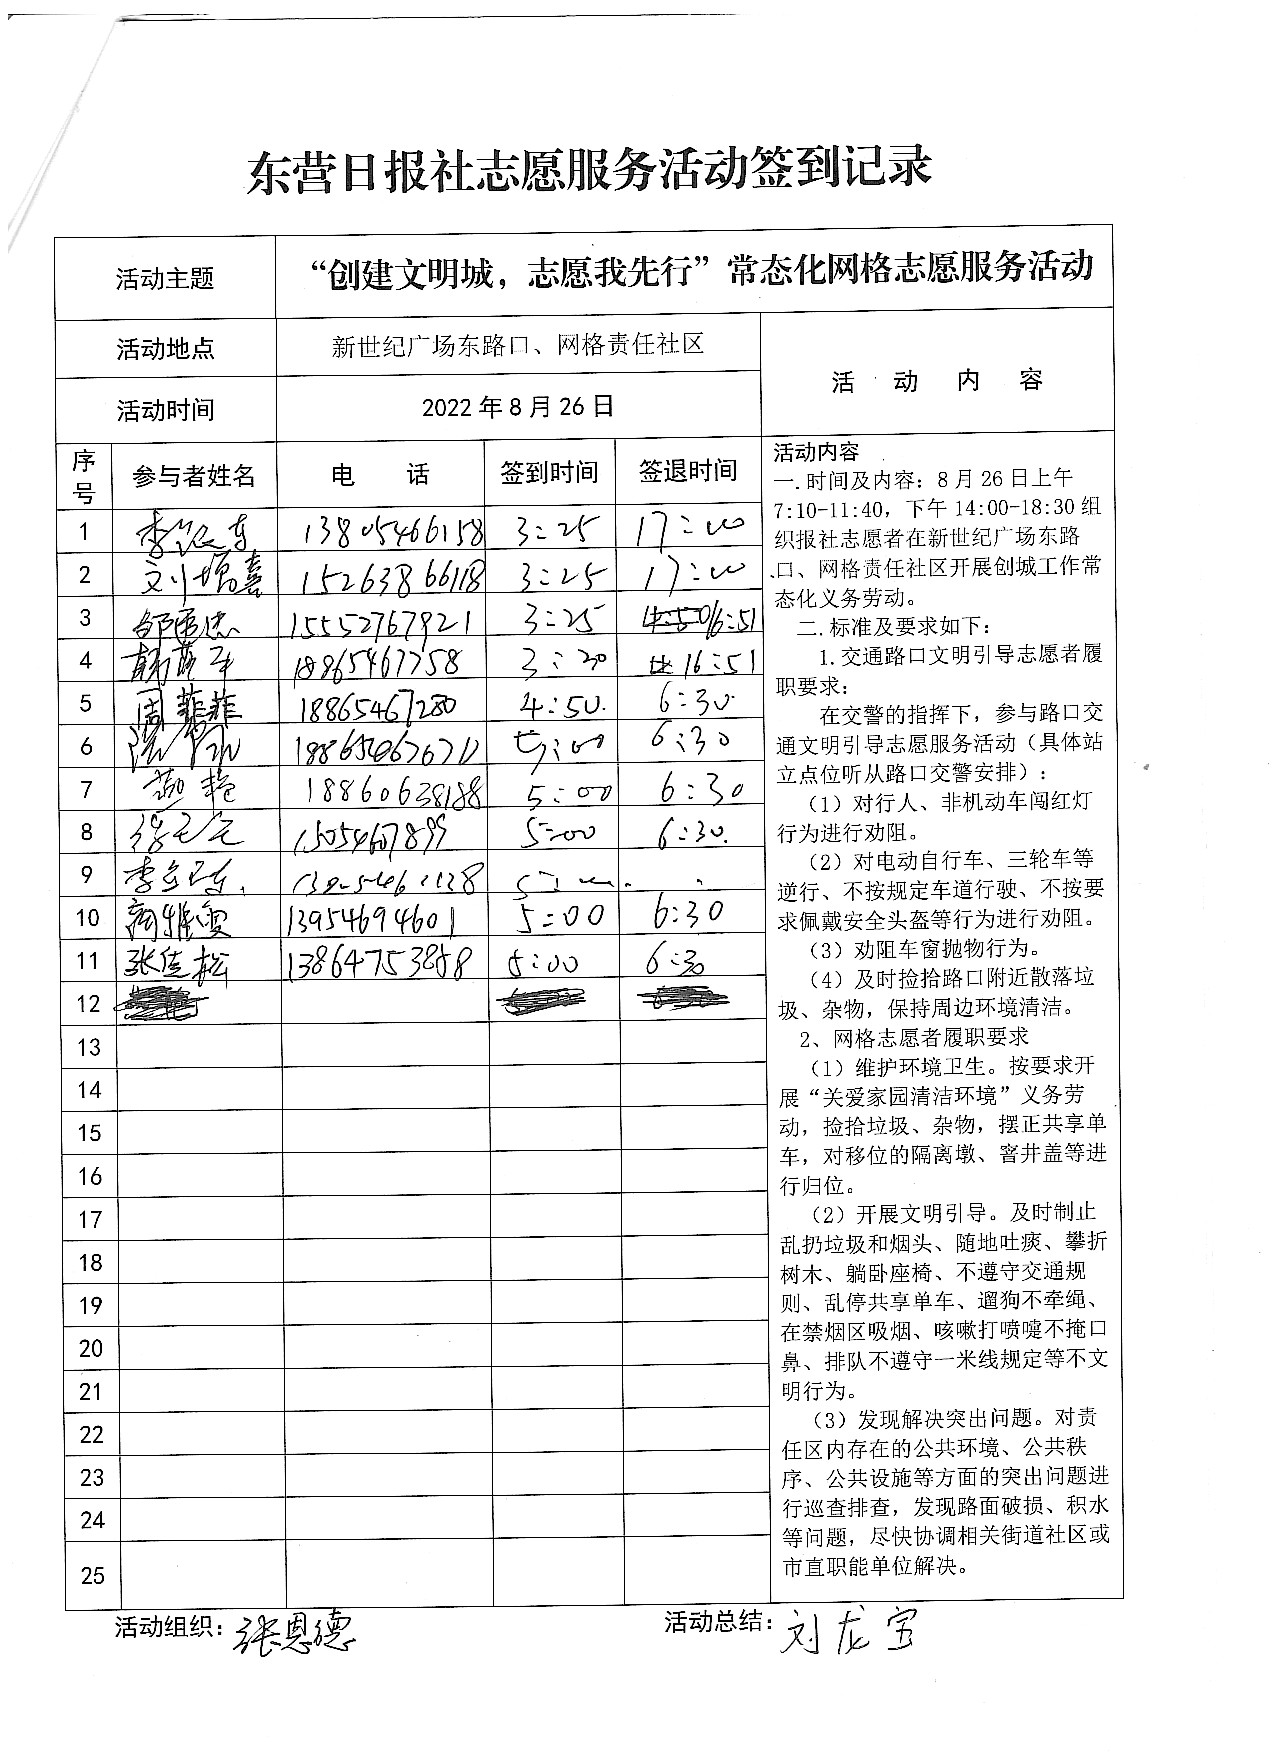 东营日报社志愿服务活动签到记录
活动主题
“创建文明城，志愿我先行”常态化网格志愿服务活动
活动地点
新世纪广场东路口、网格责任社区
活动时间
2022年8月26日
活 动 内 容
序号 参与者姓名 电 话 签到时间 签退时间
1 13805466158 3:25 17:00
2 刘增嘉 15263866118 3:25 17:00
3 15552767921 3:25 16:51
4 18865467758 3:20 16:51
5 周菲菲 18865467280 4:50 6:30
6 5:00 6:30
7 18860638188 5:00 6:30
8 15054607899 5:00 6:30
9
10 13954694601 5:00 6:30
11 张佳松 13864753858 5:00 6:30
12
13
14
15
16
17
18
19
20
21
22
23
24
25
活动内容
一.时间及内容：8月26日上午
7:10-11:40，下午14:00-18:30组
织报社志愿者在新世纪广场东路
口、网格责任社区开展创城工作常
态化义务劳动。
二.标准及要求如下：
1.交通路口文明引导志愿者履
职要求：
在交警的指挥下，参与路口交
通文明引导志愿服务活动（具体站
立点位听从路口交警安排）：
（1）对行人、非机动车闯红灯
行为进行劝阻。
（2）对电动自行车、三轮车等
逆行、不按规定车道行驶、不按要
求佩戴安全头盔等行为进行劝阻。
（3）劝阻车窗抛物行为。
（4）及时捡拾路口附近散落垃
圾、杂物，保持周边环境清洁。
2、网格志愿者履职要求
（1）维护环境卫生。按要求开
展“关爱家园清洁环境”义务劳
动，捡拾垃圾、杂物，摆正共享单
车，对移位的隔离墩、窨井盖等进
行归位。
（2）开展文明引导。及时制止
乱扔垃圾和烟头、随地吐痰、攀折
树木、躺卧座椅、不遵守交通规
则、乱停共享单车、遛狗不牵绳、
在禁烟区吸烟、咳嗽打喷嚏不掩口
鼻、排队不遵守一米线规定等不文
明行为。
（3）发现解决突出问题。对责
任区内存在的公共环境、公共秩
序、公共设施等方面的突出问题进
行巡查排查，发现路面破损、积水
等问题，尽快协调相关街道社区或
市直职能单位解决。
活动组织：张恩德
活动总结：刘龙宝